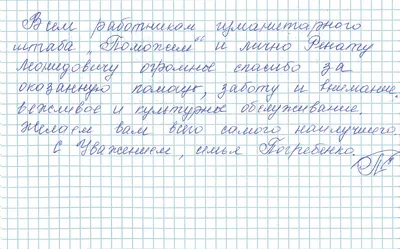 Всем работникам гуманитарного
штаба „Поможем“ и лично Ринату
Леонидовичу огромные спасибо за
оказанную помощь, заботу и внимание
вежливое и культурные обслуживание.
Желаем вам всего самого наилучшего.
С Уважением, семья Погребенко.